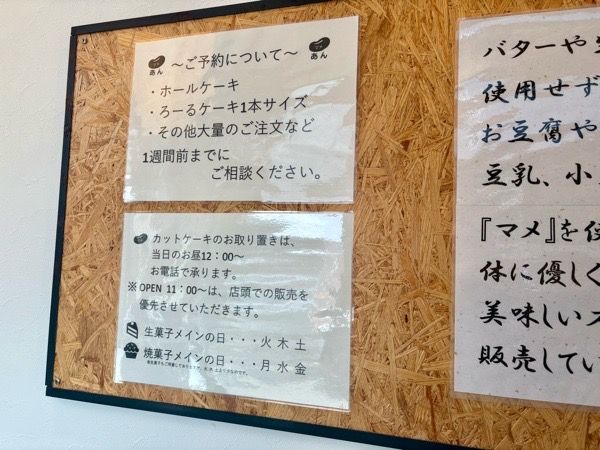 〜ご予約について〜
あん
あん
・ホールケーキ
・ろーるケーキ1本サイズ
・その他大量のご注文など
1週間前までに
ご相談ください。
カットケーキのお取り置きは、
当日のお昼12：00〜
お電話で承ります。
※ OPEN 11：00〜は、店頭での販売を
優先させていただきます。
生菓子メインの日・・・火 木 土
焼菓子メインの日・・・月 水 金
バターや
使用せず
お豆腐や
豆乳、小
『マメ』を使
体に優しく
美味しいス
販売してい